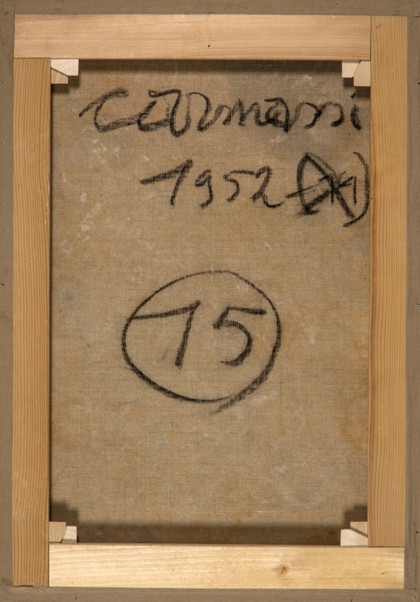 Carmassi
1952
15